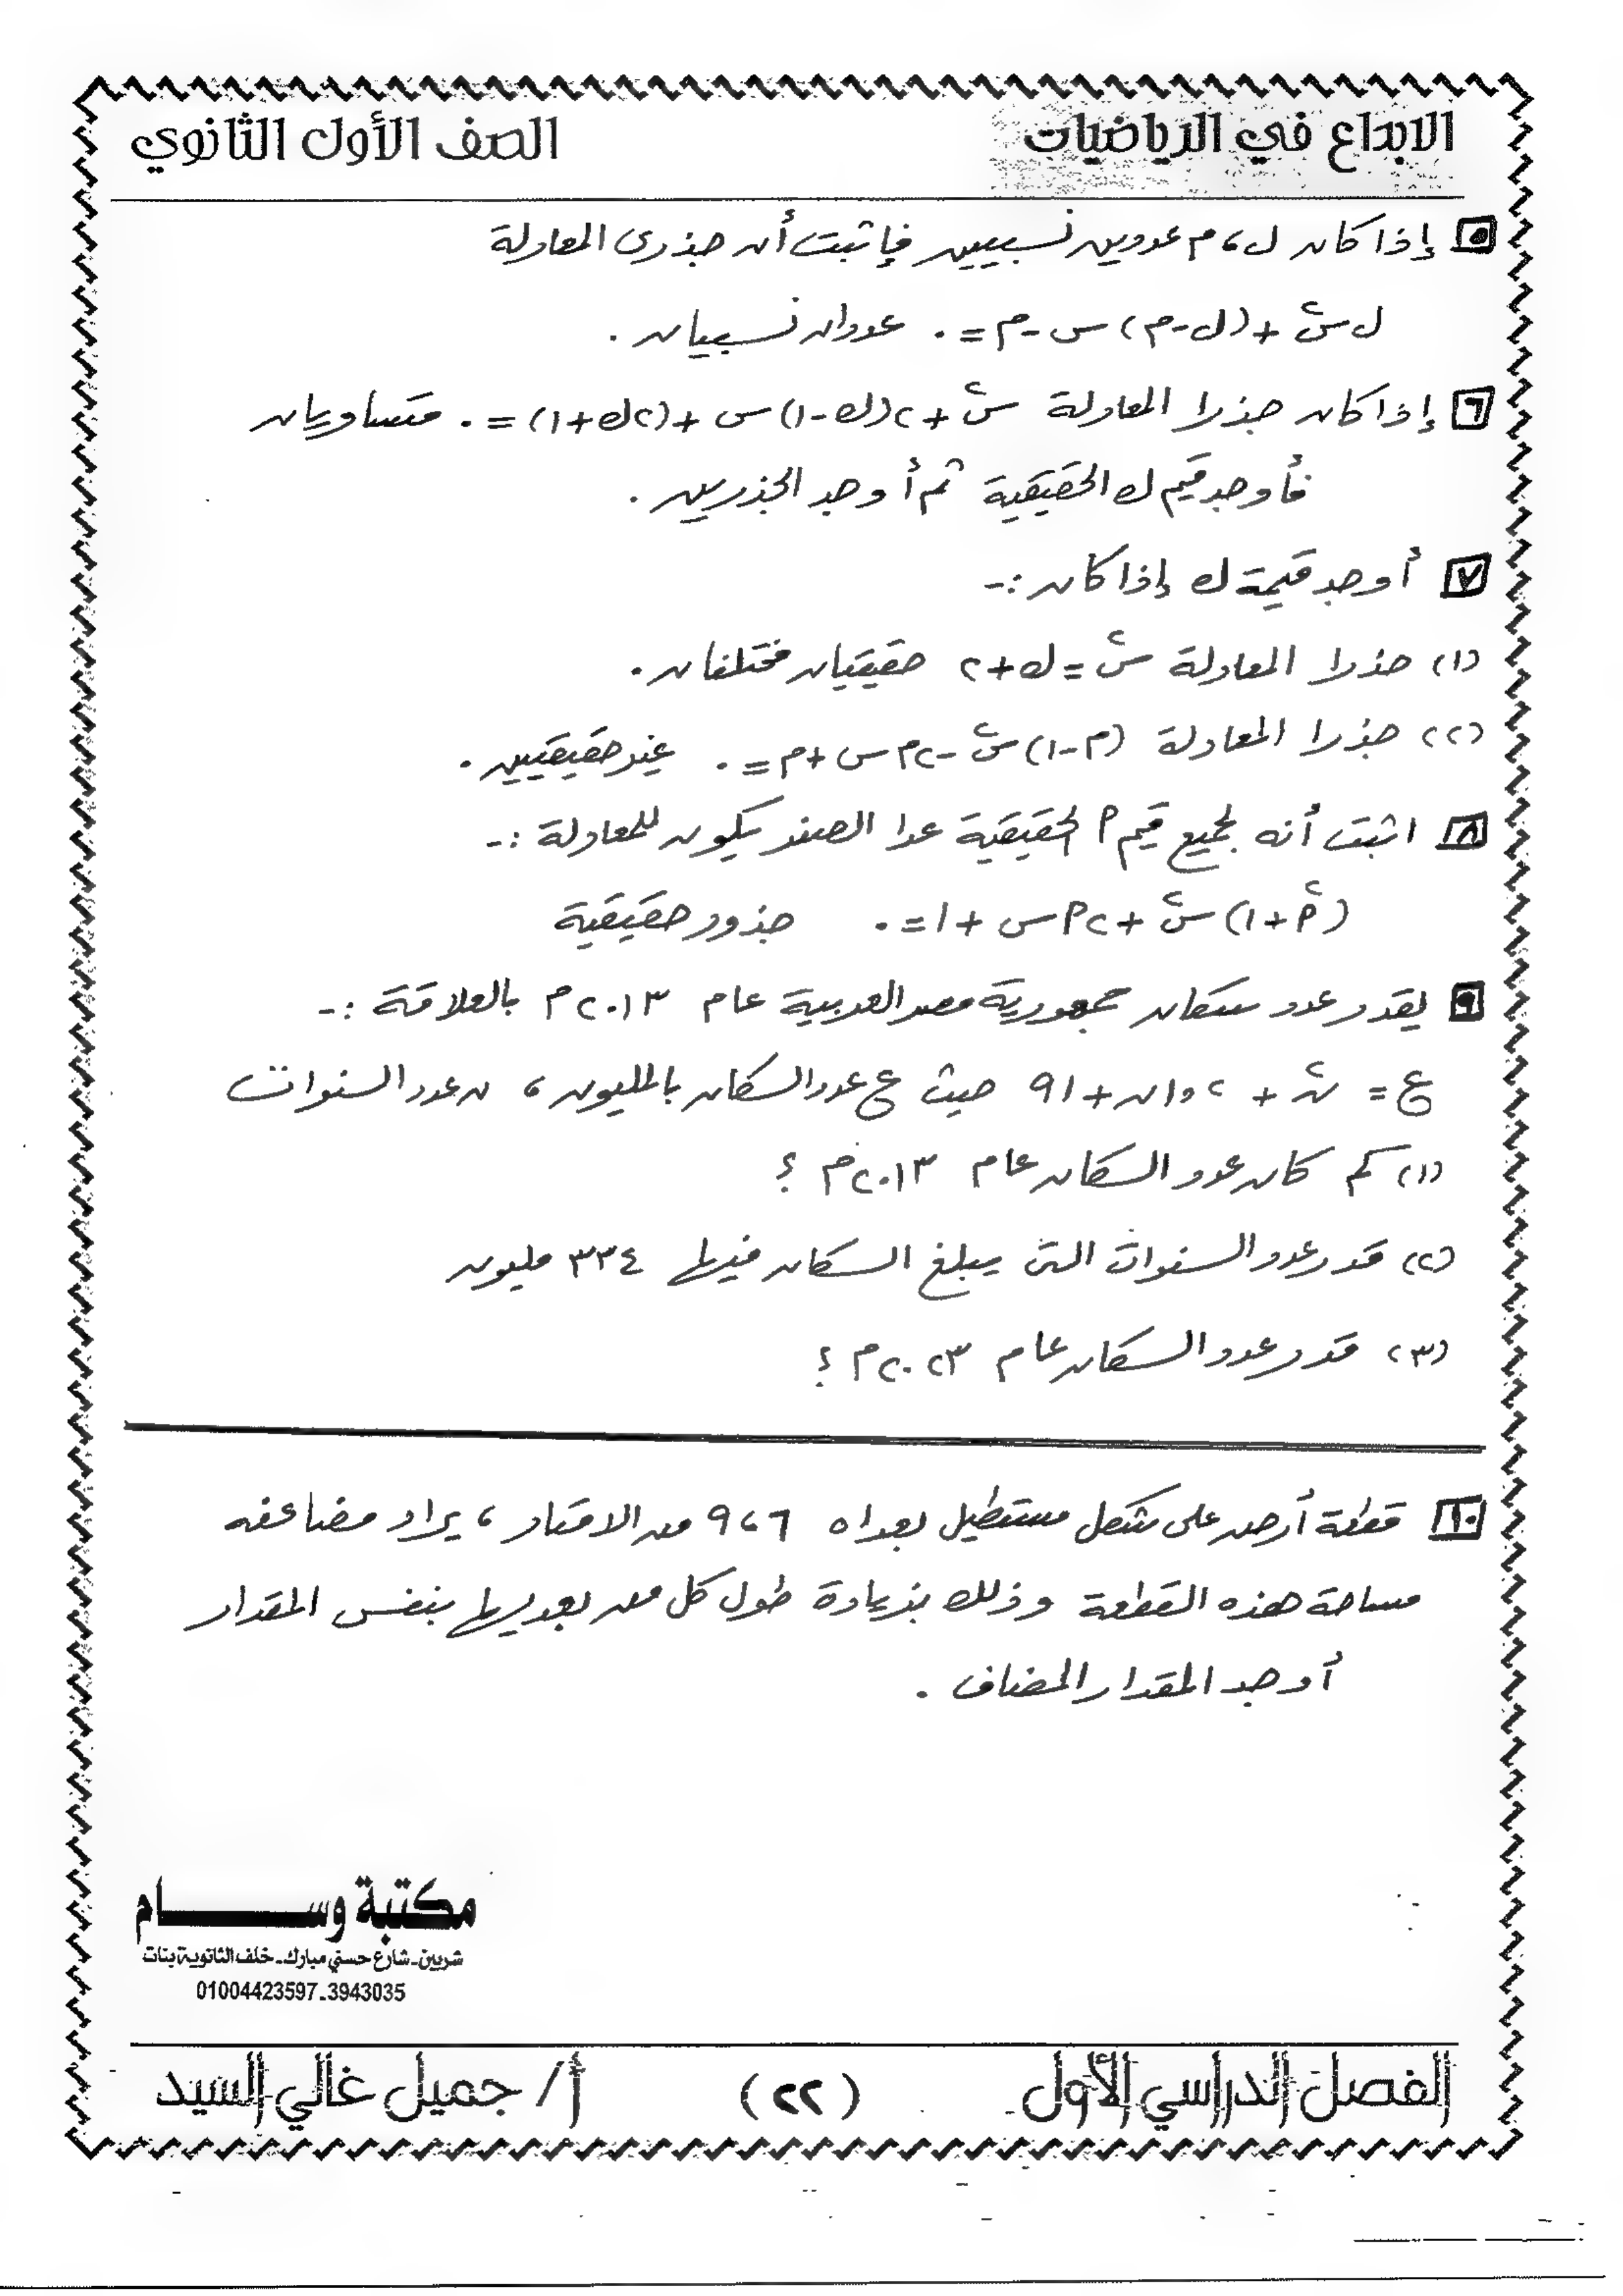 الابداع في الرياضيات
الصف الأول الثانوي
٥ إذا كان ل ، م عددين نسبيين فإثبت أن جذرى المعادلة
ل س٢ + (ل - م) س - م = ٠ عددان نسبيان .
٦ إذا كان جذرا المعادلة س٢ + ٢(ك - ١) س + (٢ك + ١) = ٠ متساويان
فأوجد قيم ك الحقيقية ثم أوجد الجذرين .
٧ أوجد قيمة ك إذا كان :-
(١) جذرا المعادلة س٢ = ك + ٢ حقيقيان مختلفان .
(٢) جذرا المعادلة (م - ١) س٢ - ٢م س + م = ٠ غير حقيقيين .
٨ اثبت أنه لجميع قيم أ الحقيقية عدا الصفر يكون للمعادلة :-
(أ٢ + ١) س٢ + ٢أ س + ١ = ٠ جذور حقيقية
٩ يقدر عدد سكان جمهورية مصر العربية عام ٢٠١٣ م بالعلاقة :-
ع = ن٢ + ١,٢ ن + ٩١ حيث ع عدد السكان بالمليون ، ن عدد السنوات
(١) كم كان عدد السكان عام ٢٠١٣ م ؟
(٢) قدر عدد السنوات التى يبلغ السكان فيها ٣٣٤ مليون
(٣) قدر عدد السكان عام ٢٠٢٣ م ؟
١٠ قطعة أرض على شكل مستطيل بعداه ٦ ، ٩ من الامتار ، يراد مضاعفه
مساحة هذه القطعة وذلك بزيادة طول كل من بعديها بنفس المقدار
أوجد المقدار المضاف .
مكتبة وسام
شربين-شارع حسني مبارك-خلف الثانوية بنات
01004423597-3943035
الفصل الدراسي الأول
(٢٢)
أ/ جميل غالي السيد